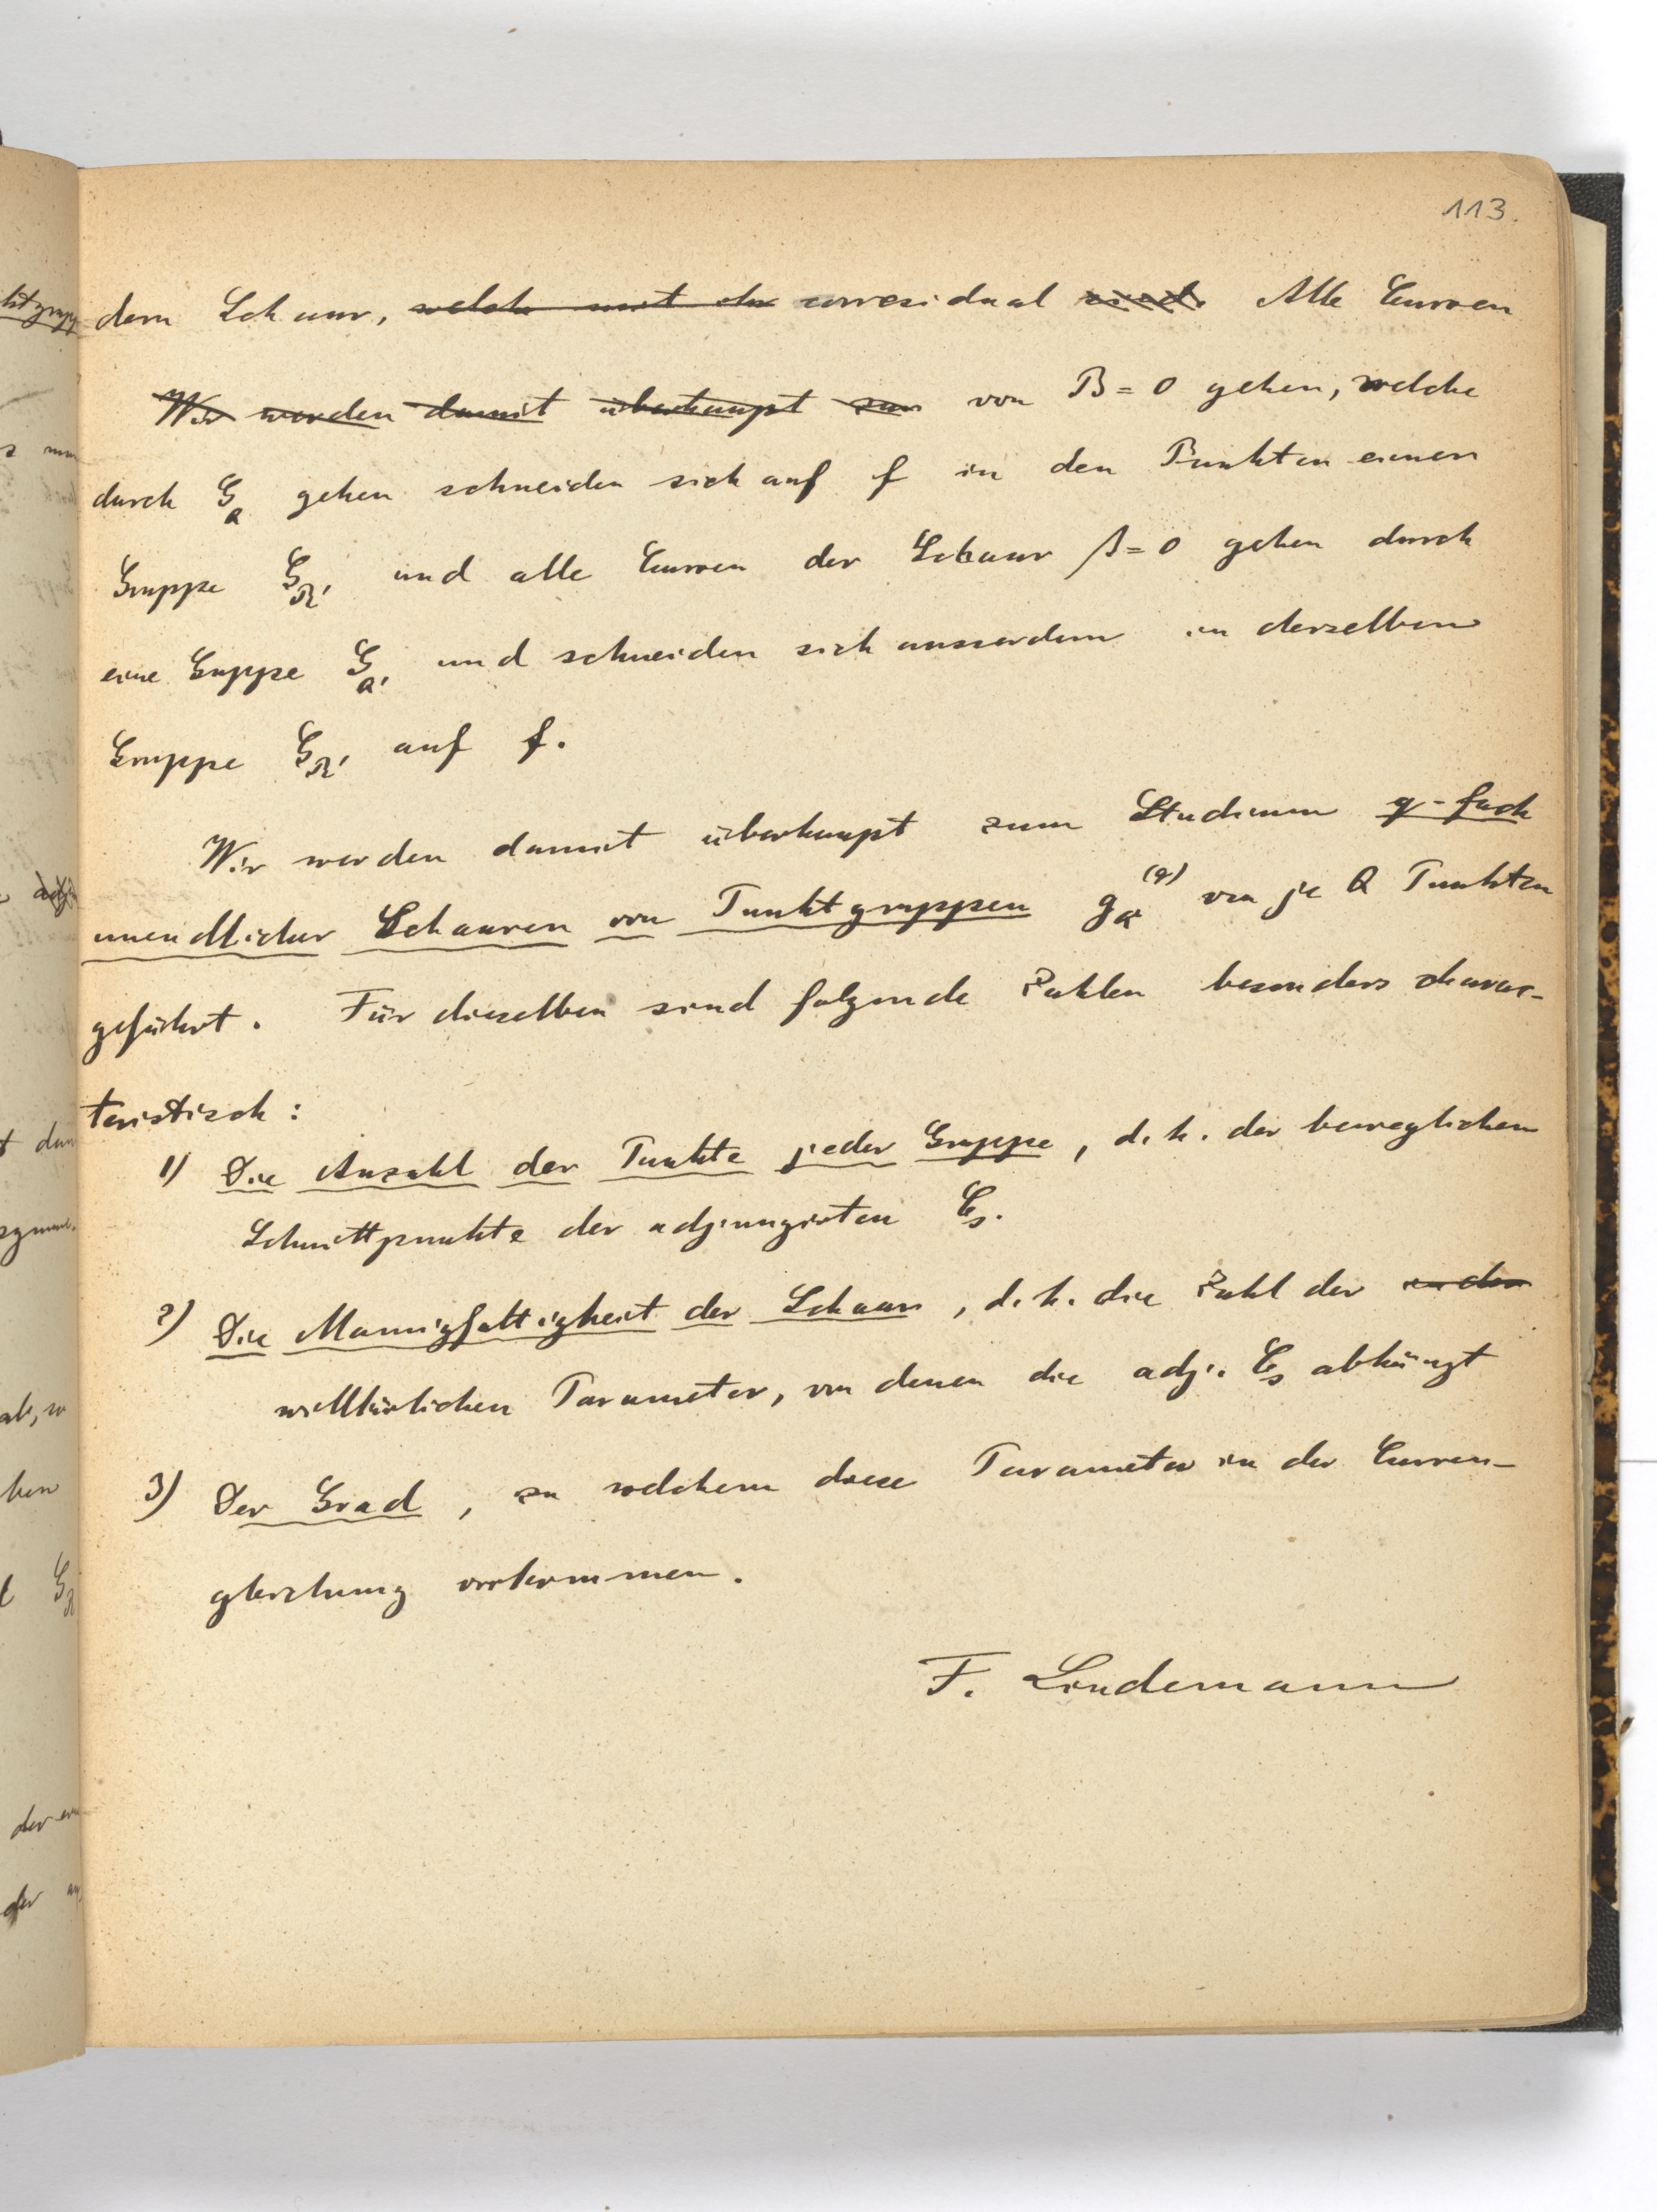 113.
dern Schaar, welche mit der corresidual sind. Alle Curven
Wir werden damit überhaupt zum von B = 0 gehen, welche
durch G_Q gehen schneiden sich auf f in den Punkten einer
Gruppe G_R' und alle Curven der Schaar β = 0 gehen durch
eine Guppe G_Q' und schneiden sich ausserdem in derselben
Gruppe G_R' auf f.
Wir werden damit überhaupt zum Studium q-fach
unendlicher Schaaren von Punktgruppen g_Q^(q) von je Q Punkten
geführt. Für dieselben sind folgende Zahlen besonders charac-
teristisch:
1) Die Anzahl der Punkte jeder Gruppe, d. h. der beweglichen
Schnittpunkte der adjungirten C_s.
2) Die Mannigfaltigkeit der Schaar, d. h. die Zahl der in der
willkürlichen Parameter, von denen die adj. C_s abhängt
3) Der Grad, zu welchem diese Parameter in der Curven-
gleichung vorkommen.
F. Lindemann